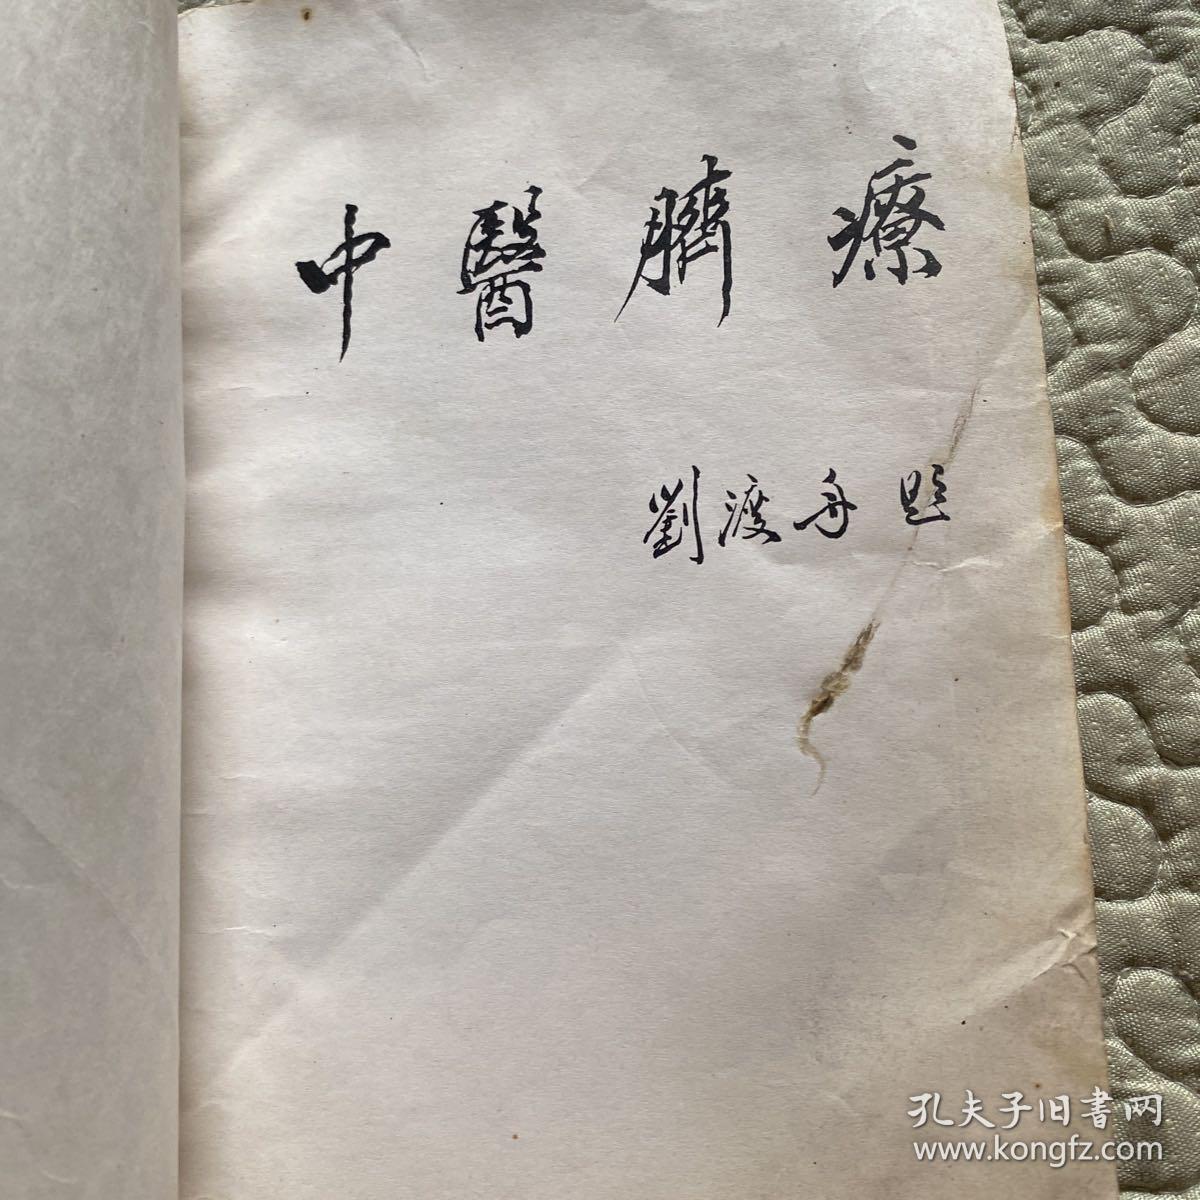 中醫臍療
劉渡舟題
孔夫子旧書网
www.kongfz.com